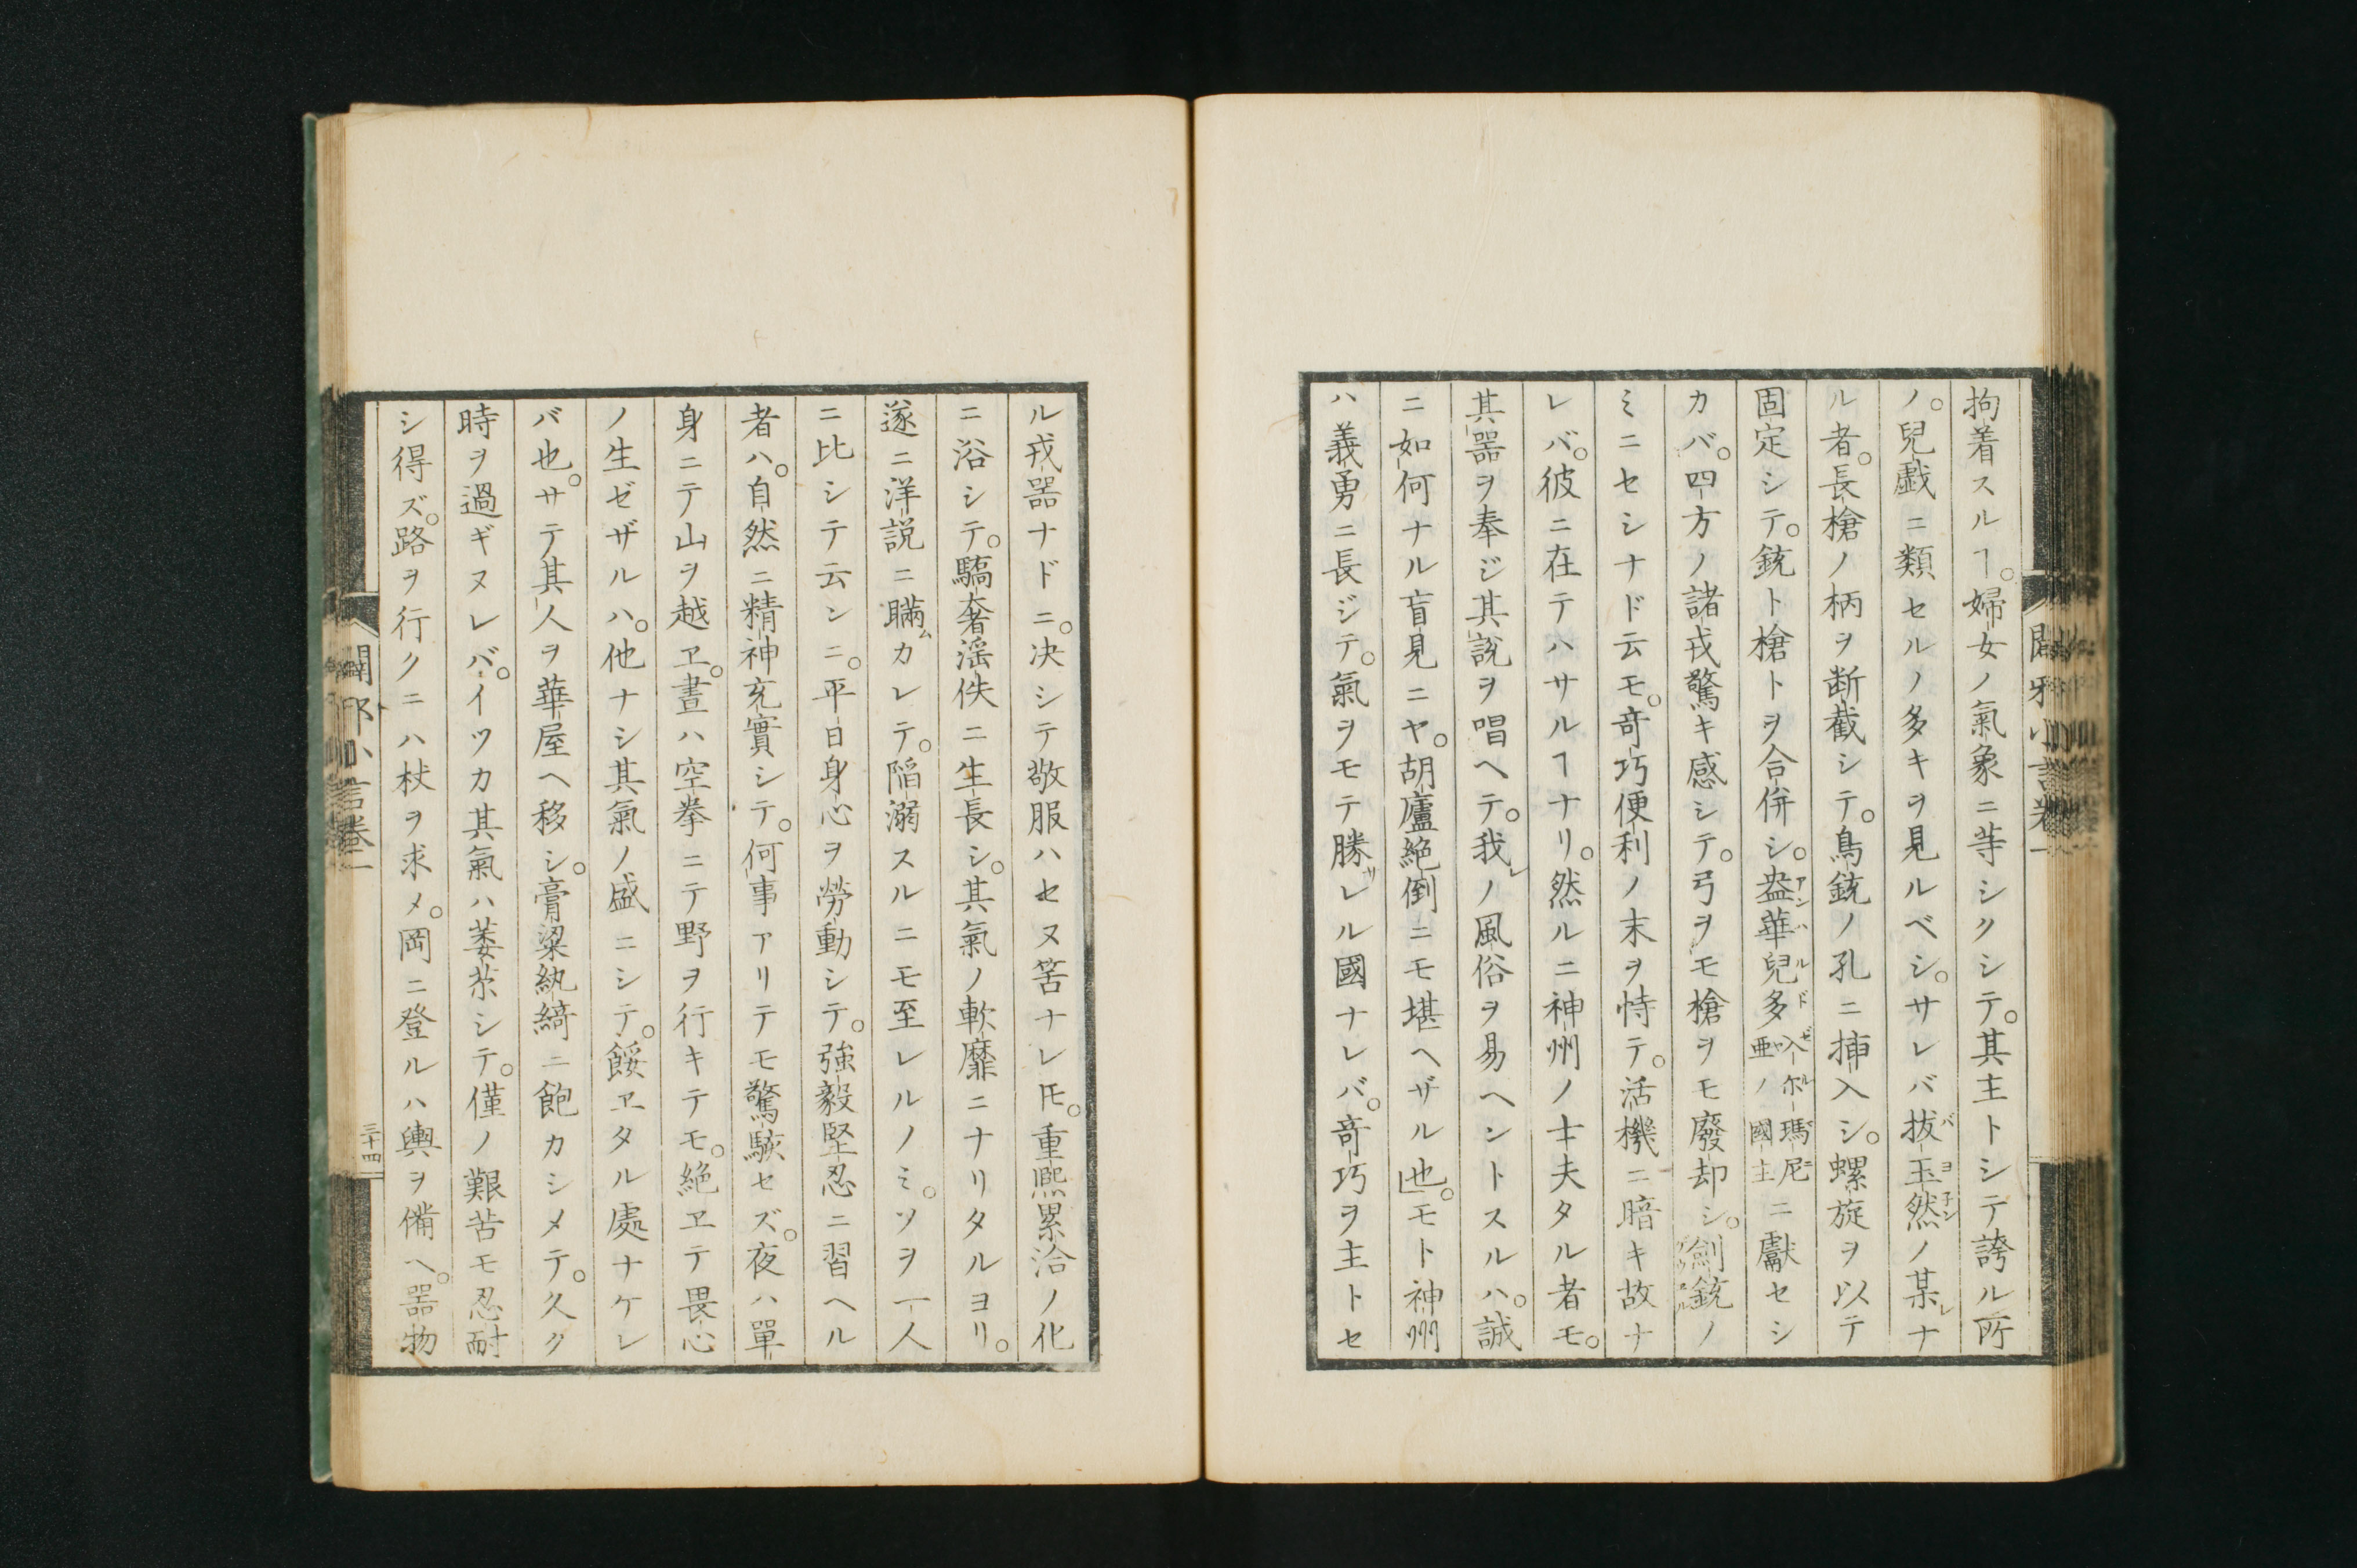 拘着スルヿ。婦女ノ氣象ニ等シクシテ。其主トシテ誇ル所
ノ。兒戲ニ類セルノ多キヲ見ルベシ。サレバ拔玉然ノ某ナ
ル者。長槍ノ柄ヲ断截シテ。鳥銃ノ孔ニ挿入シ。螺旋ヲ以テ
固定シテ。銃ト槍トヲ合併シ。盎華兒多入尓瑪尼亜ノ國主ニ獻セシ
カバ。四方ノ諸戎驚キ感シテ。弓ヲモ槍ヲモ廢却シ。劍銃ノ
ミニセシナド云モ。竒巧便利ノ末ヲ恃テ。活機ニ暗キ故ナ
レバ。彼ニ在テハサルヿナリ。然ルニ神州ノ士夫タル者モ。
其器ヲ奉ジ其說ヲ唱ヘテ。我ノ風俗ヲ易ヘントスルハ。誠
ニ如何ナル盲見ニヤ。胡廬絶倒ニモ堪ヘザル也。モト神州
ハ義勇ニ長ジテ。氣ヲモテ勝レル國ナレバ。竒巧ヲ主トセ
闢邪小言卷一
ル戎器ナドニ。决シテ敬服ハセヌ筈ナレ𪜈。重熈累洽ノ化
ニ浴シテ。驕奢滛佚ニ生長シ。其氣ノ軟靡ニナリタルヨリ。
遂ニ洋説ニ瞞カレテ。陷溺スルニモ至レルノミ。ソヲ一人
ニ比シテ云ンニ。平日身心ヲ勞動シテ。強毅堅忍ニ習ヘル
者ハ。自然ニ精神充實シテ。何事アリテモ驚駭セズ。夜ハ單
身ニテ山ヲ越ヱ。晝ハ空拳ニテ野ヲ行キテモ。絶ヱテ畏心
ノ生ゼザルハ。他ナシ其氣ノ盛ニシテ。餒ヱタル處ナケレ
バ也。サテ其人ヲ華屋ヘ移シ。膏粱紈綺ニ飽カシメテ。久ク
時ヲ過ギヌレバ。イツカ其氣ハ萎苶シテ。僅ノ艱苦モ忍耐
シ得ズ。路ヲ行クニハ杖ヲ求メ。岡ニ登ルハ輿ヲ備ヘ。器物
闢邪小言卷一
三十四